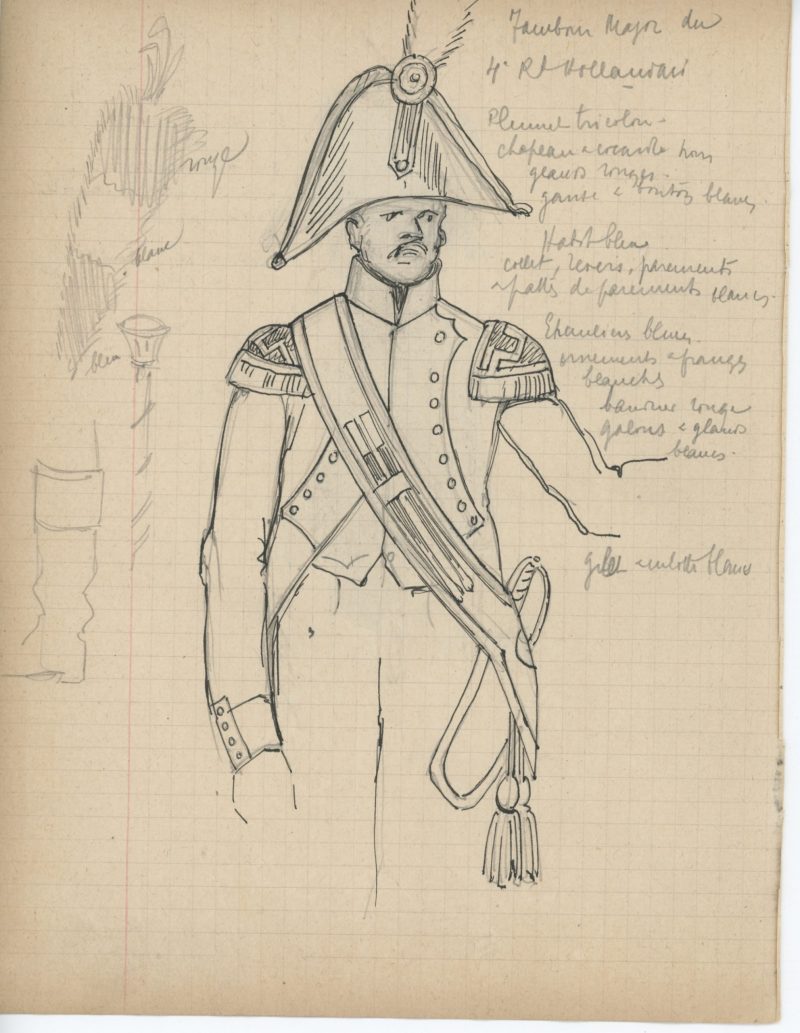 Tambour Major du
4e Rt Hollandais
Plumet tricolore
chapeau & cocarde noirs
glands rouges.
ganse & boutons blancs.
Habit bleu
collet, revers, parements
& pattes de parements blancs.
Epaulettes bleues
ornements & franges
blanches
baudrier rouge
galons & glands
blancs.
gilet & culotte blancs
rouge
blanc
bleu